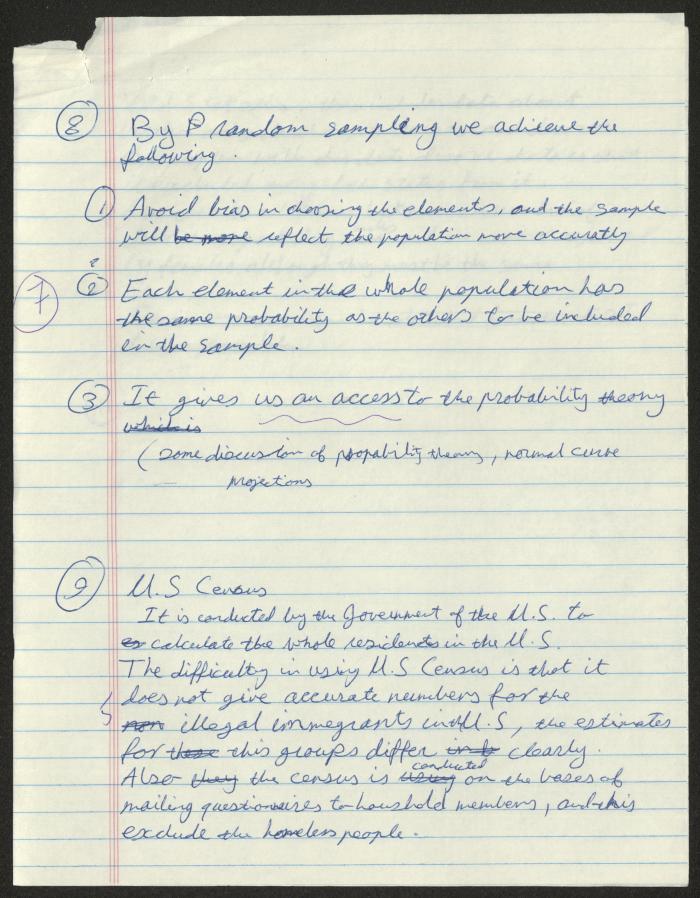 8 By P random sampling we achieve the
following.
1 Avoid bias in choosing the elements, and the sample
will be more reflect the population more accurately
?
7
2 Each element in the whole population has
the same probability as the others to be included
in the sample.
3 It gives us an access to the probability theory
which is
( some discussion of propability theory, normal curve
projections
9 U.S Census
It is conducted by the Government of the U.S. to
calculate the whole residents in the U.S.
The difficulty in using U.S Census is that it
does not give accurate numbers for the
non illegal immegrants in U.S, the estimates
for these this groups differ clearly.
conducted
Also they the census is using on the bases of
mailing questionaires to houshold members, and this
exclude the homeless people.